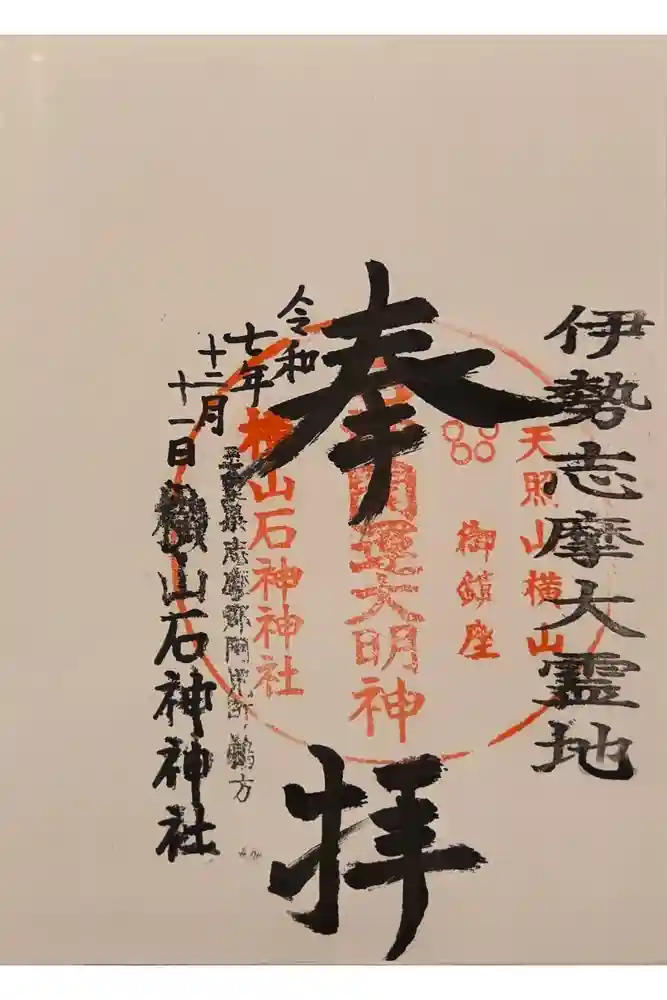 伊勢志摩大霊地
天照山横山
御鎮座
奉拝
開運大明神
令和
七年
十二月
十一日
横山石神神社
志摩郡阿児町鵜方
横山石神神社